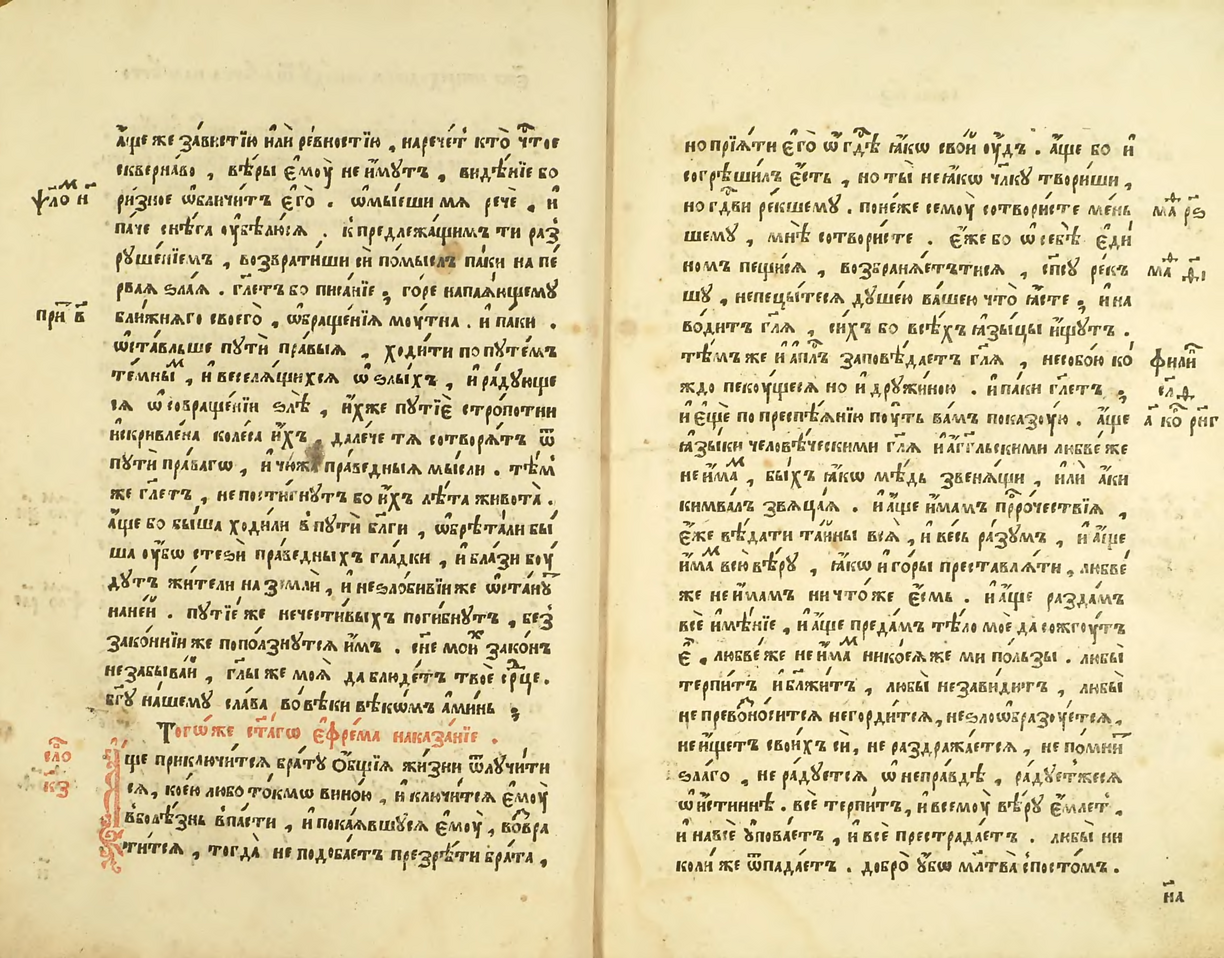 а҆́ще же за́вистїю и҆лѝ ре́вностїю , нарече́т кто̀ чⷭ҇тое
скверна́во , вѣ́ры є҆моу̀ не и҆́мутъ , видѣ́нїе бо
ри́зное ѡ҆бличи́т є҆го̀ . ѡ҆мы́еши мѧ речѐ , и҆
па́че снѣ́га оу҆бѣлю́сѧ . к̾ предлежа́щим ти раз̾
руше́нїемъ , возврати́ши сѝ по́мыслъ па́ки на пе́
рваѧ ѕла́ѧ . гл҃етъ бо писа́нїе , го́ре напаѧ́ющему
бли́жнѧго своего̀ , ѡ҆браще́нїѧ моу́тна . и҆ па́ки .
ѡ҆ста́вльше пути̑ пра́выѧ , ходи́ти по путе́мъ
те́мныⷨ , и҆ веселѧ́щихсѧ ѡ҆ ѕлы́хъ , и҆ ра́дующе
сѧ ѡ҆ совраще́нїи ѕлѣ̀ , и҆́хже путїѐ стро́потни
и҆ скривле́на коле́са и҆́хъ , дале́че тѧ сотворѧ́тъ ѿ
пути̑ пра́вагѡ , и҆ чю́жа пра́ведныѧ мы́сли . тѣ́м̾
же гл҃етъ , не пости́гнутъ бо и҆́хъ лѣ́та живота̀ .
а҆́ще бо бы́ша ходи́ли в̾ пути̑ бл҃ги , ѡ҆брѣта́ли бы́
ша оу҆́бѡ стезѝ пра́ведныхъ гла́дки , и҆ бла́зи боу́
дутъ жи́тели на земли̑ , и҆ неѕло́бивїи же ѡ҆ста́нуⷮ
на не́й . путїе́ же нечести́выхъ поги́бнутъ , без̾
зако́ннїи же поползну́тсѧ и҆́мъ . сн҃е мои́хъ зако́нъ
не забыва́й , гл҃ы же моѧ̀ да блюде́тъ твоѐ срⷣце .
бг҃у на́шему сла́ва во вѣ́ки вѣкѡ́мъ а҆ми́нь ,
Тогѡ́же ст҃а́гѡ є҆фре́ма наказа́нїе .
А҆́ще приключи́тсѧ бра́ту ѻ҆́бщїѧ жи́зни ѿлучи́ти
сѧ , ко́ею любо то́кмѡ вино́ю , и҆ ключи́тсѧ є҆моу̀
в̾ болѣ́знь впа́сти , и҆ пока́ѧвшусѧ є҆моу̀ , возвра
ти́тсѧ , тогда̀ не подоба́етъ презрѣ́ти бра́та ,
ѱло́ⷨ н҃
при́ⷮ в҃
сло́ⷡ
к҃з
но прїѧ́ти є҆го̀ ѿ гдⷭ҇ѣ ꙗ҆́кѡ сво́й оу҆́дъ . а҆́ще бо и҆
согрѣши́лъ є҆́сть , но ты̀ не ꙗ҆́кѡ чл҃ку твори́ши ,
но гдⷭ҇ви ре́кшему . поне́же семоу̀ сотвори́сте ме́нь
шему , мнѣ̀ сотвори́сте . є҆́же бо ѡ҆ себѣ̀ є҆ди́
ном пещи́сѧ , возбранѧ́етътисѧ , сп҃су ре́къ
шу , непецы́тесѧ душе́ю ва́шею что̀ ꙗ҆́сте , и҆ на
во́дитъ гл҃ѧ , си́хъ бо всѣ́хъ ꙗ҆зы́цы и҆́щутъ .
тѣ́мъ же и҆ а҆пⷭ҇лъ заповѣ́даетъ гл҃ѧ , не собо́ю ко́
ждо пеку́щесѧ но и҆ дружи́ною . и҆ па́ки гл҃етъ ,
и҆ є҆щѐ по преспѣ́ѧнїю поу́ть ва́мъ показоу́ю . а҆́ще
ꙗ҆зы́ки человѣ́ческими гл҃ѧ и҆ а҆́гг҃льскими любве́ же
не и҆́маⷨ , бы́хъ ꙗ҆́кѡ мѣ́дь звенѧ́щи , и҆лѝ а҆́ки
кимва́лъ звѧца́ѧ . и҆ а҆́ще и҆́мамъ прⷪ҇ро́чествїѧ ,
є҆́же вѣ́дати та́йны всѧ̀ , и҆ ве́сь ра́зумъ , и҆ а҆́ще
и҆́маⷨ всю̀ вѣ́ру , ꙗ҆́кѡ и҆ го́ры преставлѧ́ти , любве́
же не и҆́мамъ ничто́ же є҆́смь . и҆ а҆́ще разда́мъ
всѐ и҆мѣ́нїе , и҆ а҆́ще преда́мъ тѣ́ло моѐ да сожгоу́тъ
є҆̀ . любве́ же не и҆́маⷨ никоеѧ́же ми по́льзы . любы̀
терпи́тъ и҆ бл҃жи́тъ , любы̀ незави́дитъ , любы̀
не превоⷥно́ситсѧ негорди́тсѧ , неѕлоѡбразоу́етсѧ ,
не и҆́щетъ свои́хъ сѝ , не раздража́етсѧ , не по́мнит̾
ѕла́го , не ра́дуетсѧ ѡ҆ непра́вдѣ , ра́дуетжесѧ
ѡ҆ и҆́стиннѣ . всѐ терпи́тъ , и҆ всемоу̀ вѣ́ру є҆́млет̾ ,
и҆ на всѐ оу҆пова́етъ , и҆ всѐ престрада́етъ . любы̀ ни
коли́ же ѿпада́етъ . добро̀ оу҆́бѡ мл҃тва с̾ посто́мъ .
маⷴ р҃ѕ
маⷴ д҃і
фили́ⷩ
а҆ ко́ⷬ рн҃г
на